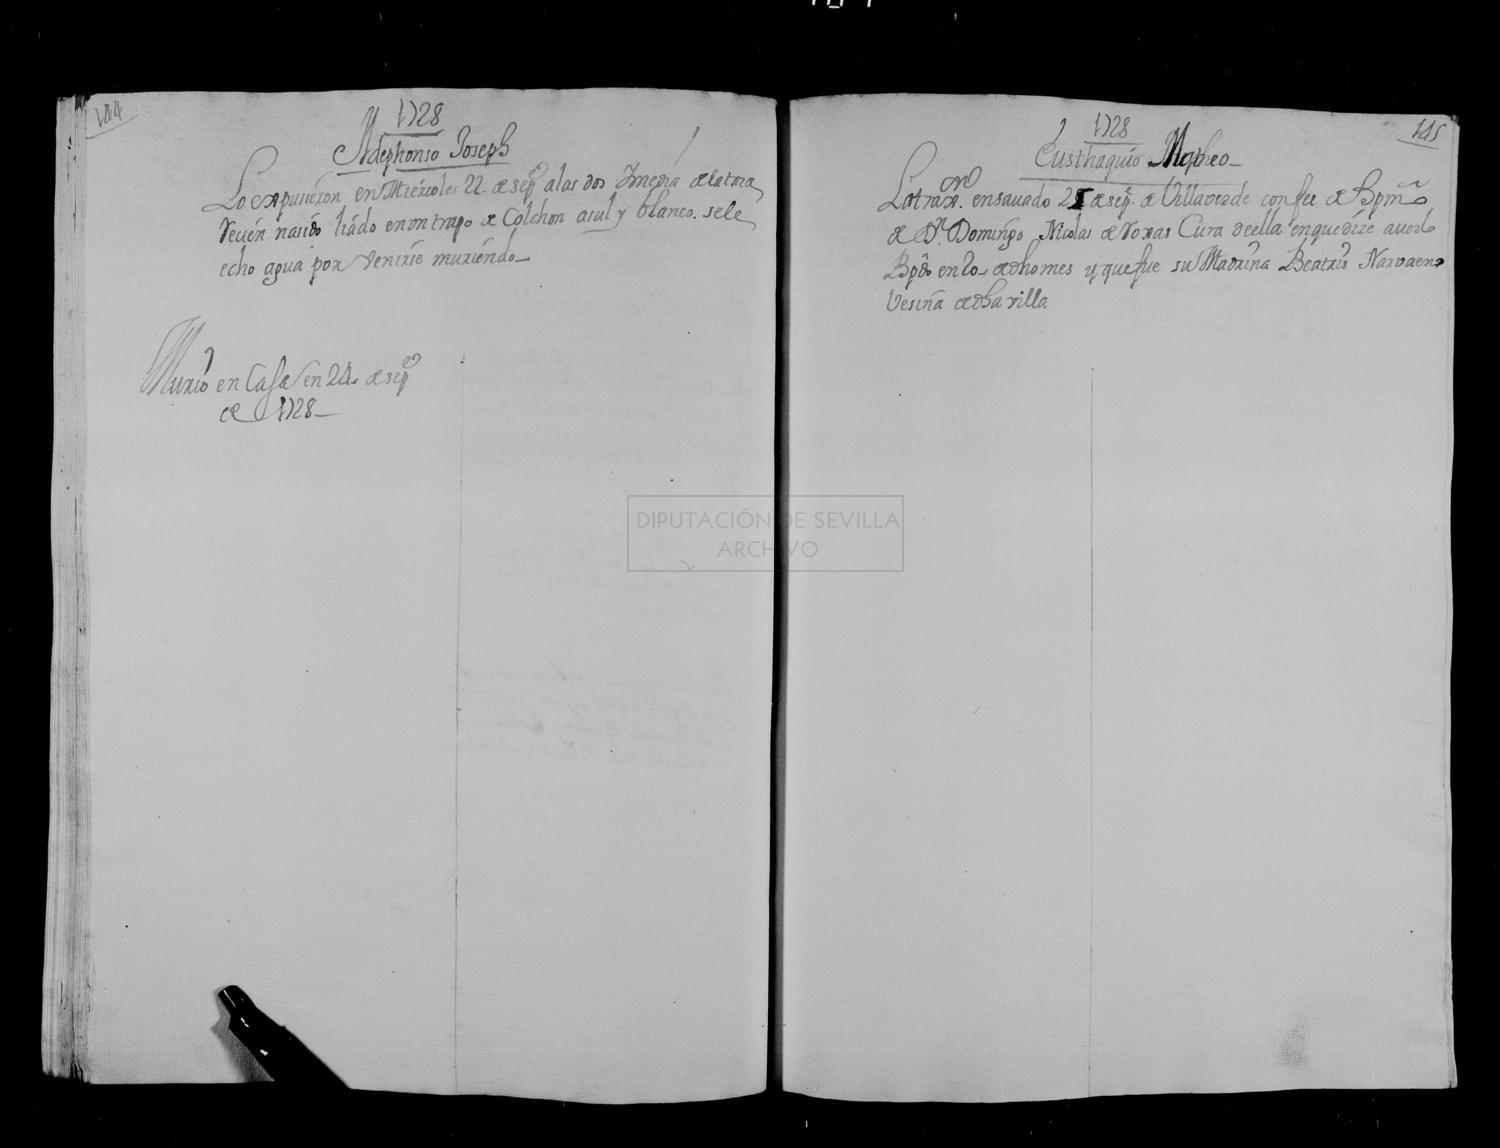 144
1728
Ildephonso Joseph
Lo expusieron en Miércoles 22 de sep.e a las dos Ymedia de la tarde
Recien nasido liado en un trapo de Colchon asul y blanco. se le
echo agua por venirse muriendo
Murio en Casa en 24 de sep.e
de 1728
145
1728
Eusthaquio Matheo
Lo traxr.on en savado 25 de sep.e de Villaverde con fee de Bpmo
de Dn. Domingo Nicolas de Roxas Cura de ella en que dize averlo
Bpdo en 20 de dho mes y que fue su Madrina Beatris Narvaens
Vesina de dha villa
DIPUTACIÓN DE SEVILLA
ARCHIVO